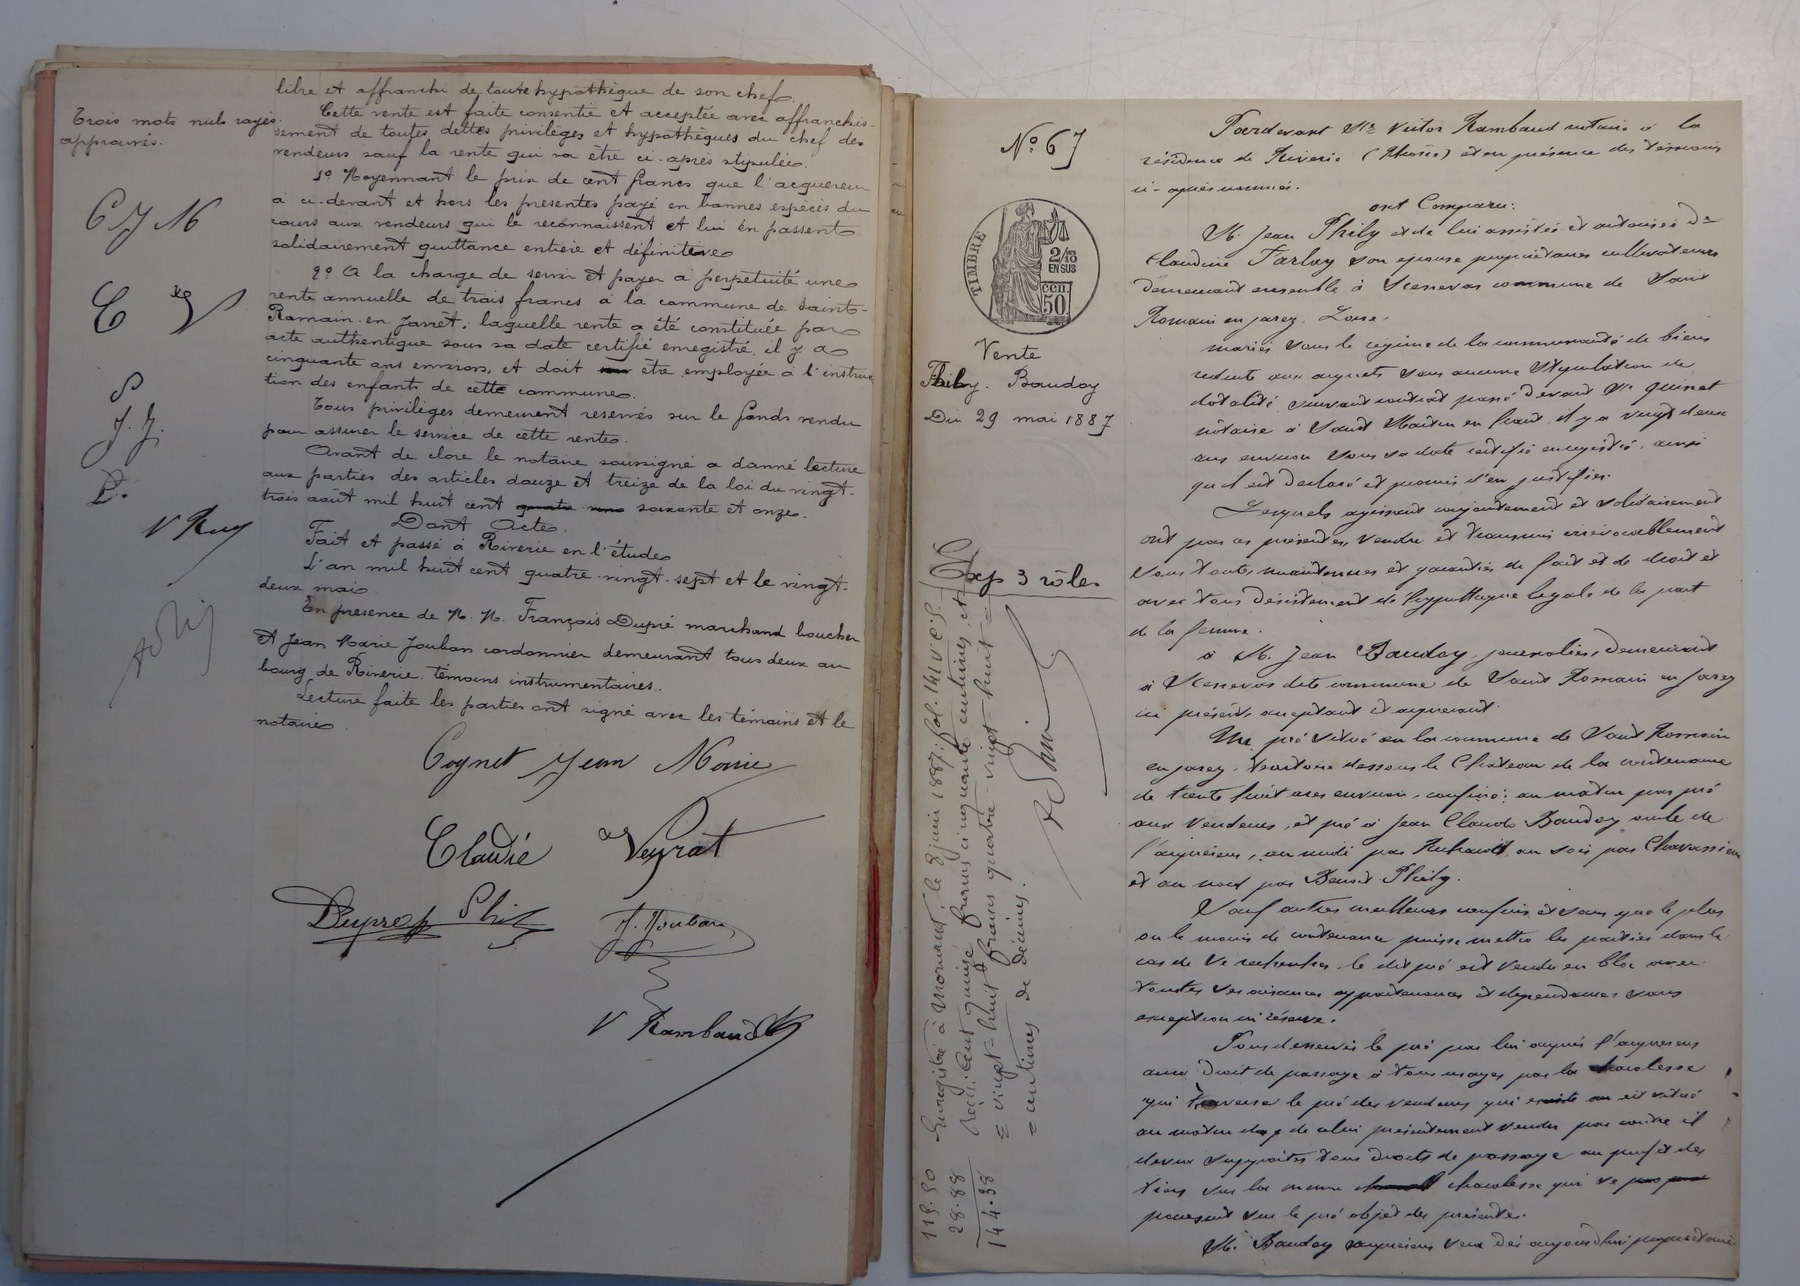 libre et affranchi de toute hypothèque de son chef.
Cette vente est faite consentie et acceptée avec affranchis-
sement de toutes dettes privilèges et hypothèques du chef des
vendeurs sauf la rente qui va être ci-après stipulée.
1º Moyennant le prix de cent francs que l'acquereur
a ci-devant et hors les présentes payé en bonnes espèces du
cours aux vendeurs qui le reconnaissent et lui en passent
solidairement quittance entière et définitive
2º A la charge de servir et payer à perpétuité une
rente annuelle de trois francs à la commune de Saint-
Romain-en-Jarrêt; laquelle rente a été constituée par
acte authentique sous sa date certifié enregistré, il y a
cinquante ans environ, et doit être employée à l'instruc-
tion des enfants de cette commune.
Tous privilèges demeurent réservés sur le fonds vendu
pour assurer le service de cette rente.
Avant de clore le notaire soussigné a donné lecture
aux parties des articles douze et treize de la loi du vingt-
trois août mil huit cent quatre vingt soixante et onze.
Dont Acte.
Fait et passé à Riverie en l'étude
L'an mil huit cent quatre-vingt-sept et le vingt-
deux mai
En présence de M. M. François Dupré marchand boucher
et Jean Marie Jouban cordonnier demeurant tous deux au
bourg de Riverie, témoins instrumentaires.
Lecture faite les parties ont signé avec les témoins et le
notaire
Trois mots nuls rayés
approuvés.
C J M
J. J.
D.
V Ray
Cognet Jean Marie
Claude Veyrat
Dupré
J. Jouban
V Rambaud
Nº 67
TIMBRE
2/10
EN SUS
50 cen
Vente
Thily. Baudoy
Du 29 mai 1887
Exp 3 rôles
Enregistré à Mornant, le 8 juin 1887, fol. 141 V. C. 5.
Reçu: cent quinze francs cinquante centimes, et
= vingt-huit francs quatre-vingt-huit =
= centimes de décimes.
115.50
28.88
144.38
Pardevant Me Victor Rambaud notaire à la
résidence de Riverie (Rhône) et en présence des témoins
ci-après nommés.
ont Comparu:
M. Jean Thily et de lui assistée et autorisée De
Claudine Farlay son épouse propriétaires cultivateurs
demeurant ensemble à Senevas commune de Saint
Romain en jarez. Loire.
mariés sous le régime de la communauté de biens
réduite aux acquets sans aucune stipulation de
dotalité suivant contrat passé devant Me Quinet
notaire à Saint Martin en haut, il y a vingt deux
ans environ sous sa date certifié enregistré, ainsi
qu'il est déclaré et promis d'en justifier.
Lesquels agissant conjointement et solidairement
ont par ces présentes, vendu et transmis irrévocablement
sous toutes maintenues et garanties de fait et de droit et
avec tous désistement d'hypothèque légale de la part
de la femme.
à M. Jean Baudoy, journalier, demeurant
à Senevas dite commune de Saint Romain en Jarez
ici présent, acceptant et acquerant.
Un pré situé en la commune de Saint Romain
en jarez, territoire dessous le Château de la contenance
de trente huit ares environ, confiné: au matin par pré
aux vendeurs, et pré à Jean Claude Baudoy oncle de
l'acquéreur, au midi par au soir par
et au nord par Benoit Thily.
Sauf autres meilleurs confins et sans que le plus
ou le moins de contenance puisse mettre les parties dans le
cas de se rechercher, le dit pré est vendu en bloc avec
toutes ses aisances appartenances et dépendances sans
exception ni réserve.
Pour desservir le pré par lui acquis l'acquereur
aura Droit de passage à tous usages par la charolesse
qui traverse le pré des vendeurs qui est situé
au matin de celui présentement vendu par contre il
devra supporter tous droits de passage au profit des
tiers sur la meme charolesse qui se
poursuit sur le pré objet des présentes.
M. Baudoy acquéreur sera Dès aujourd'hui propriétaire